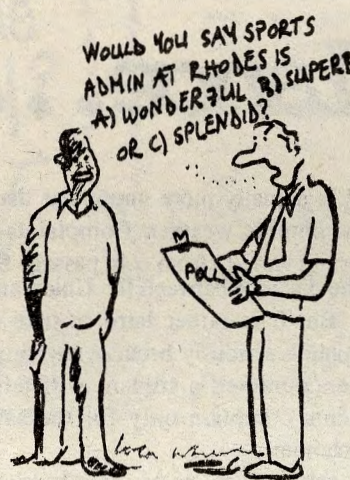 WOULD YOU SAY SPORTS
ADMIN AT RHODES IS
A) WONDERFUL B) SUPERB
OR C) SPLENDID?
POLL